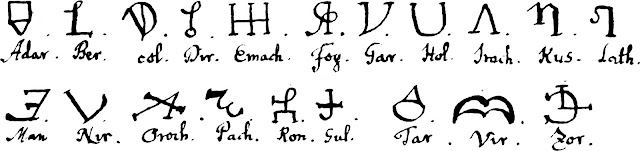 Adar. Ber. col. Dir. Emach. Foy. Gar. Hol. Iroch. Kus. Lath.
Man Nir. Oroch. Pach. Ron. Sul. Tar. Vir. Zor.